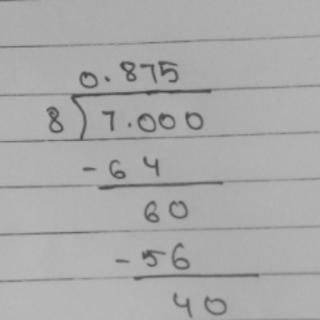 0.875
8) 7.000
-64
60
-56
40